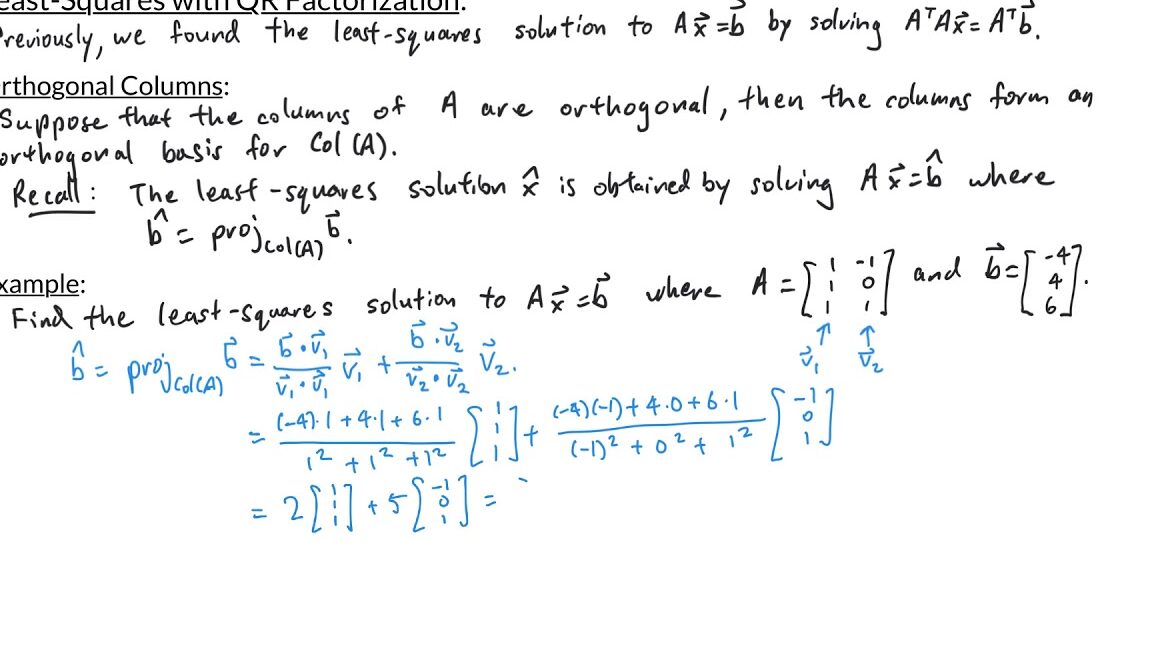 east-Squares with QR Factorization:
reviously, we found the least-squares solution to Ax⃗=b⃗ by solving AᵀAx⃗=Aᵀb⃗.
rthogonal Columns:
Suppose that the columns of A are orthogonal, then the columns form an
orthogonal basis for Col(A).
Recall: The least-squares solution x̂ is obtained by solving Ax⃗=b̂ where
b̂ = proj_Col(A) b⃗.
xample:
Find the least-squares solution to Ax⃗=b⃗ where A = [1 -1; 1 0; 1 1] and b⃗=[-4; 4; 6].
↑ ↑
v⃗₁ v⃗₂
b̂ = proj_Col(A) b⃗ = (b⃗·v⃗₁)/(v⃗₁·v⃗₁) v⃗₁ + (b⃗·v⃗₂)/(v⃗₂·v⃗₂) v⃗₂.
= ((-4)·1+4·1+6·1)/(1²+1²+1²) [1; 1; 1] + ((-4)(-1)+4·0+6·1)/((-1)²+0²+1²) [-1; 0; 1]
= 2[1; 1; 1] + 5[-1; 0; 1] =